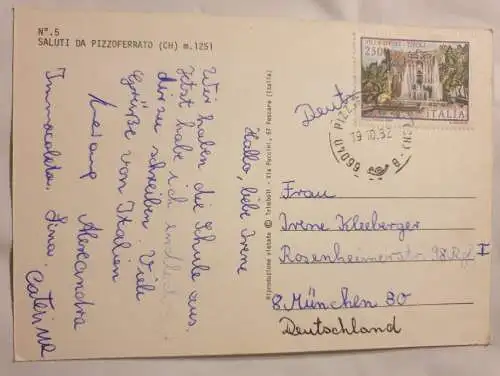 N°.5
SALUTI DA PIZZOFERRATO (CH) m.1251
Hallo, liebe Irene
Wir haben die Schule aus.
Jetzt habe ich endlich
dir zu schreiben. Viele
Grüße von Italien
Alessandra
Immacolata, Lina. Caterina
Riproduzione vietata © Trimboli - Via Puccini, 67 Pescara (Italia)
250
ITALIA
TIVOLI
66040
19.10.82
Frau
Irene Kleeberger
Rosenheimerstr. 98 Rgb I
8 München 80
Deutschland